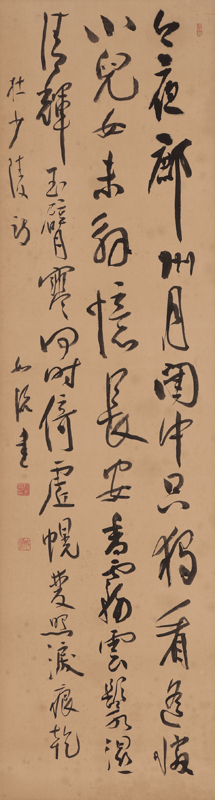 今夜鄜州月閨中只獨看遙憐
小兒女未解憶長安香霧雲鬟濕
清輝玉臂寒何時倚虛幌雙照淚痕乾
杜少陵詩
書